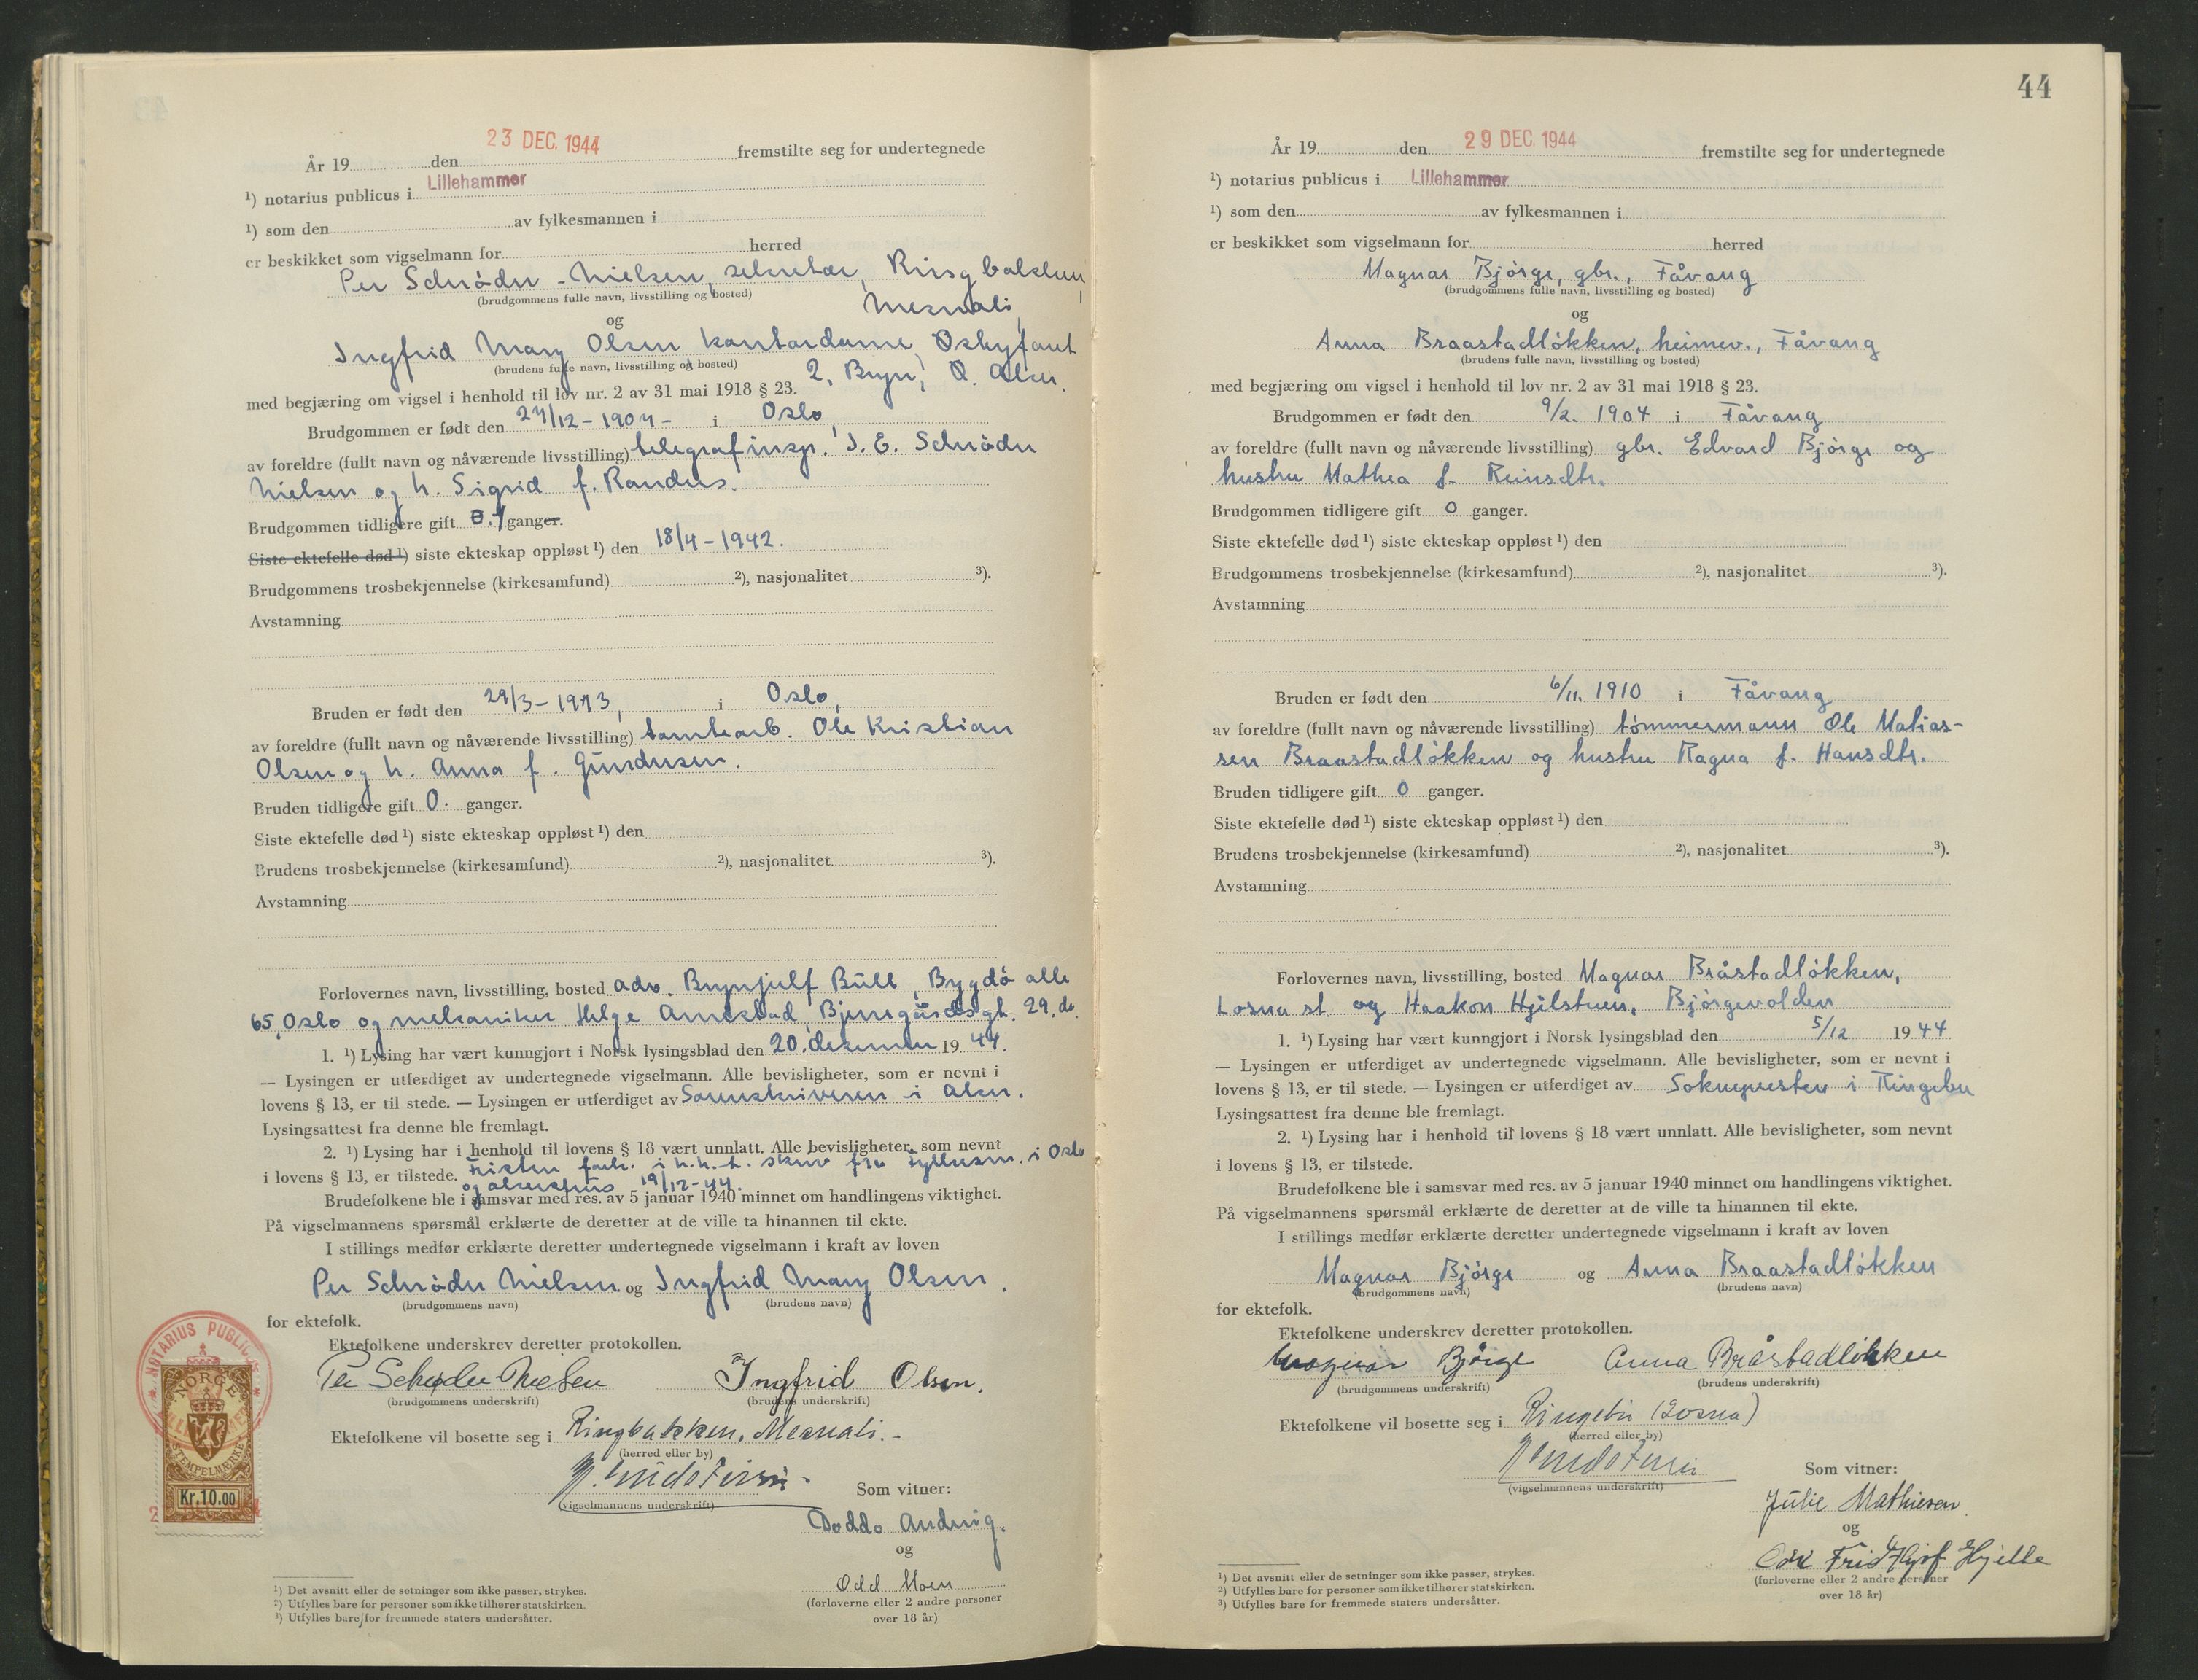 År 19 den 23 DEC. 1944 fremstilte seg for undertegnede
¹) notarius publicus i Lillehammer
¹) som den av fylkesmannen i
er beskikket som vigselmann for herred
Per Schrøder-Nielsen, sekretær, Ringbakken,
(brudgommens fulle navn, livsstilling og bosted)
Mesnali
og
Ingfrid Mary Olsen kontordame,
(brudens fulle navn, livsstilling og bosted)
2, Bryn, Ø. Aker.
med begjæring om vigsel i henhold til lov nr. 2 av 31 mai 1918 § 23.
Brudgommen er født den 27/12-1904- i Oslo,
av foreldre (fullt navn og nåværende livsstilling) telegrafinsp. J. E. Schrøder
Nielsen og h. Sigrid f. Randers.
Brudgommen tidligere gift 0. 1 ganger.
Siste ektefelle død ¹) siste ekteskap oppløst ¹) den 18/4-1942.
Brudgommens trosbekjennelse (kirkesamfund) ²), nasjonalitet ³).
Avstamning
Bruden er født den 29/3-1913, i Oslo,
av foreldre (fullt navn og nåværende livsstilling) tomtearb. Ole Kristian
Olsen og h. Anna f. Gundersen.
Bruden tidligere gift 0. ganger.
Siste ektefelle død ¹) siste ekteskap oppløst ¹) den
Brudens trosbekjennelse (kirkesamfund) ²), nasjonalitet ³).
Avstamning
Forlovernes navn, livsstilling, bosted adv. Brynjulf Bull, Bygdø alle
65, Oslo og mekaniker Helge Arnestad, Bjerregårdsgt. 29, do.
1. ¹) Lysing har vært kunngjort i Norsk lysingsblad den 20. desember 19 44.
— Lysingen er utferdiget av undertegnede vigselmann. Alle bevisligheter, som er nevnt i
lovens § 13, er til stede. — Lysingen er utferdiget av Sorenskriveren i Aker.
Lysingsattest fra denne ble fremlagt.
2. ¹) Lysing har i henhold til lovens § 18 vært unnlatt. Alle bevisligheter, som nevnt
i lovens § 13, er tilstede. Fristen fork. i h.h.t. skriv fra Fylkesm. i Oslo
og Akershus 19/12-44.
Brudefolkene ble i samsvar med res. av 5 januar 1940 minnet om handlingens viktighet.
På vigselmannens spørsmål erklærte de deretter at de ville ta hinannen til ekte.
I stillings medfør erklærte deretter undertegnede vigselmann i kraft av loven
Per Schrøder Nielsen og Ingfrid Mary Olsen.
(brudgommens navn) (brudens navn)
for ektefolk.
Ektefolkene underskrev deretter protokollen.
Per Schrøder Nielsen Ingfrid Olsen.
(brudgommens underskrift) (brudens underskrift)
Ektefolkene vil bosette seg i Ringbakken, Mesnali.-
(herred eller by)
(vigselmannens underskrift)
Som vitner:
Doddo
og
Odd Moen
(forloverne eller 2 andre personer
over 18 år)
NOTARIUS PUBLICUS
NORGE
STEMPELMÆRKE
Kr.10.00
¹) Det avsnitt eller de setninger som ikke passer, strykes.
²) Utfylles bare for personer som ikke tilhører statskirken.
³) Utfylles bare for fremmede staters undersåtter.
44
År 19 den 29 DEC. 1944 fremstilte seg for undertegnede
¹) notarius publicus i Lillehammer
¹) som den av fylkesmannen i
er beskikket som vigselmann for herred
Magnar Bjørge, gbr., Fåvang
(brudgommens fulle navn, livsstilling og bosted)
og
Anna Braastadløkken, heimev., Fåvang
(brudens fulle navn, livsstilling og bosted)
med begjæring om vigsel i henhold til lov nr. 2 av 31 mai 1918 § 23.
Brudgommen er født den 9/2. 1904 i Fåvang
av foreldre (fullt navn og nåværende livsstilling) gbr. Edvard Bjørge og
hustru Mathea f. Reinsdtr.
Brudgommen tidligere gift 0 ganger.
Siste ektefelle død ¹) siste ekteskap oppløst ¹) den
Brudgommens trosbekjennelse (kirkesamfund) ²), nasjonalitet ³).
Avstamning
Bruden er født den 6/11. 1910 i Fåvang
av foreldre (fullt navn og nåværende livsstilling) tømmermann Ole Matias-
sen Braastadløkken og hustru Ragna f. Hansdtr.
Bruden tidligere gift 0 ganger.
Siste ektefelle død ¹) siste ekteskap oppløst ¹) den
Brudens trosbekjennelse (kirkesamfund) ²), nasjonalitet ³).
Avstamning
Forlovernes navn, livsstilling, bosted Magnar Bråstadløkken,
Losna st. og Haakon Hjelstuen, Bjørgevolden
1. ¹) Lysing har vært kunngjort i Norsk lysingsblad den 5/12 19 44
— Lysingen er utferdiget av undertegnede vigselmann. Alle bevisligheter, som er nevnt i
lovens § 13, er til stede. — Lysingen er utferdiget av Soknepresten i Ringebu
Lysingsattest fra denne ble fremlagt.
2. ¹) Lysing har i henhold til lovens § 18 vært unnlatt. Alle bevisligheter, som nevnt
i lovens § 13, er tilstede.
Brudefolkene ble i samsvar med res. av 5 januar 1940 minnet om handlingens viktighet.
På vigselmannens spørsmål erklærte de deretter at de ville ta hinannen til ekte.
I stillings medfør erklærte deretter undertegnede vigselmann i kraft av loven
Magnar Bjørge og Anna Braastadløkken
(brudgommens navn) (brudens navn)
for ektefolk.
Ektefolkene underskrev deretter protokollen.
Magnar Bjørge Anna Bråstadløkken
(brudgommens underskrift) (brudens underskrift)
Ektefolkene vil bosette seg i Ringebu (Losna)
(herred eller by)
(vigselmannens underskrift)
Som vitner:
Julie Mathiesen
og
Fridthjof Hjelle
(forloverne eller 2 andre personer
over 18 år)
¹) Det avsnitt eller de setninger som ikke passer, strykes.
²) Utfylles bare for personer som ikke tilhører statskirken.
³) Utfylles bare for fremmede staters undersåtter.